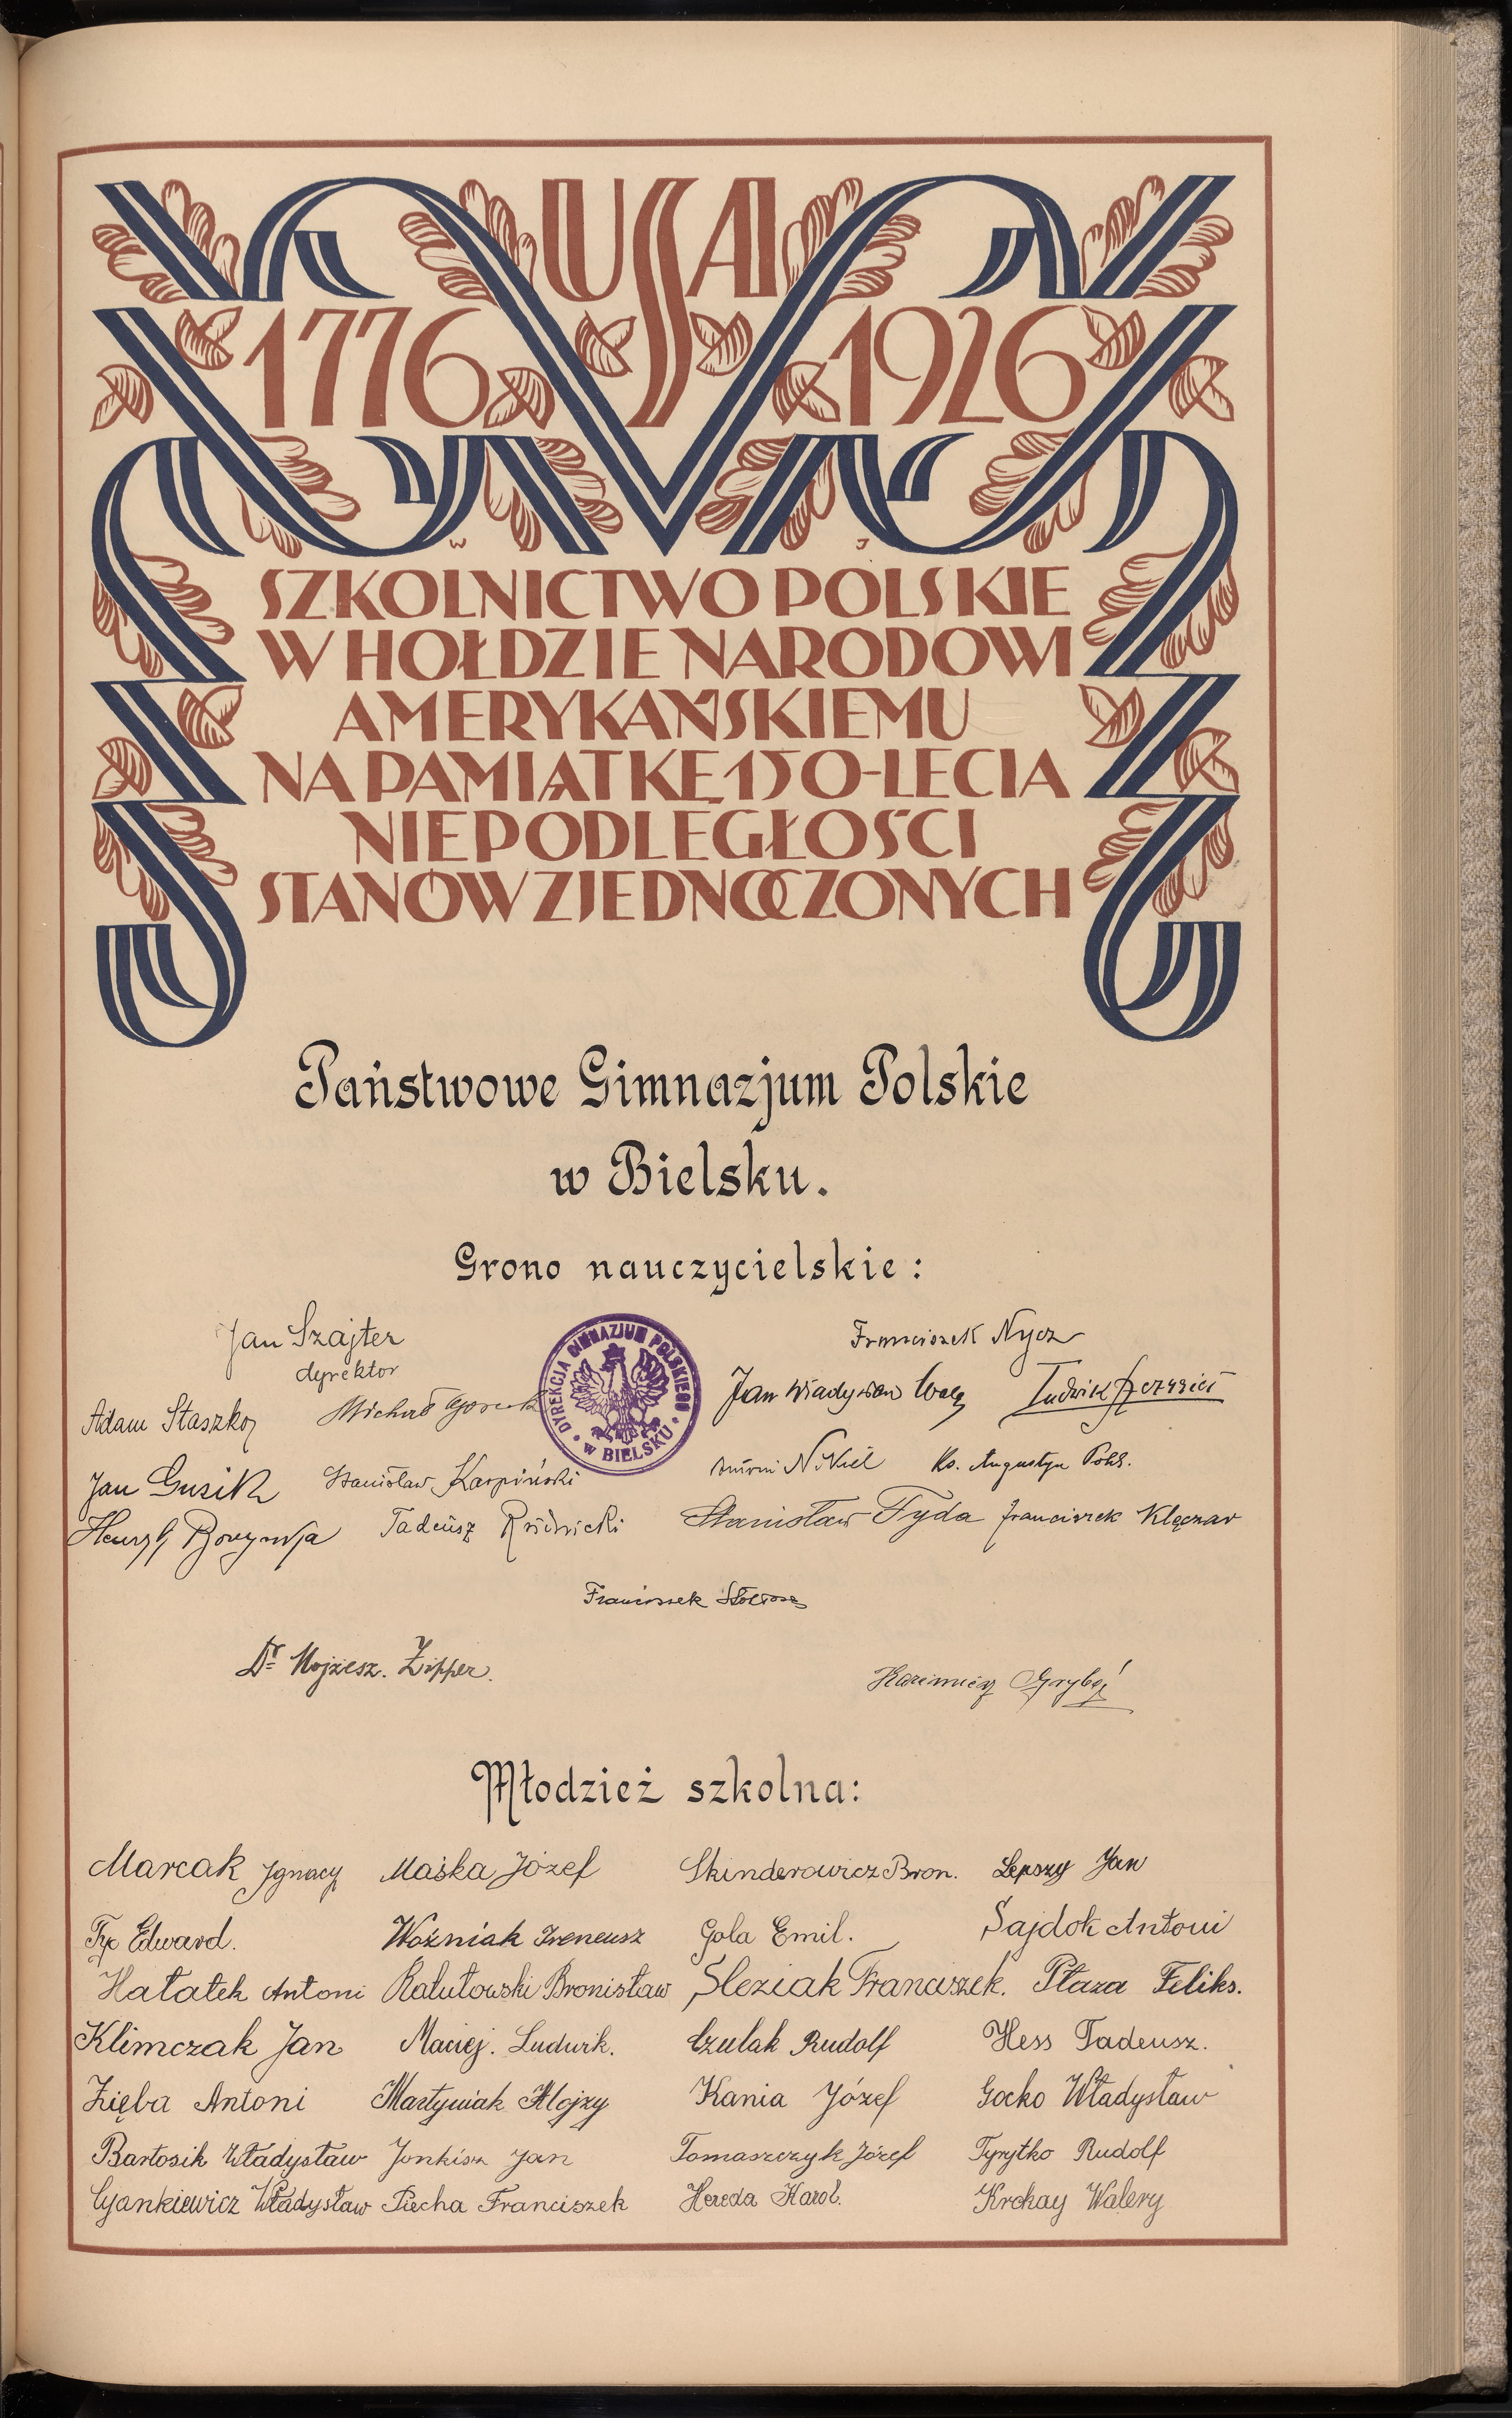 USA
1776 1926
W J
SZKOLNICTWO POLSKIE
W HOŁDZIE NARODOWI
AMERYKAŃSKIEMU
NA PAMIĄTKĘ 150-LECIA
NIEPODLEGŁOŚCI
STANÓW ZJEDNOCZONYCH
Państwowe Gimnazjum Polskie
w Bielsku.
Grono nauczycielskie:
Jan Szajter
dyrektor
DYREKCJA GIMNAZJUM POLSKIEGO
W BIELSKU
Franciszek Nycz
Adam Staszko Michał Jan Władysław Ludwik
Jan Gusik Stanisław Karpiński Antoni Nikiel Ks. Augustyn
Henryk Tadeusz Rudnicki Stanisław Tyda Franciszek Klęczar
Franciszek
Dr Mojżesz. Zipper. Kazimierz
Młodzież szkolna:
Marcak Ignacy Maśka Józef Skinderowicz Bron. Lepszy Jan
Tyc Edward. Woźniak Ireneusz Gola Emil. Sajdok Antoni
Hałatek Antoni Rałutowski Bronisław Śleziak Franciszek. Płaza Feliks.
Klimczak Jan Maciej. Ludwik. Czulak Rudolf Hess Tadeusz.
Zięba Antoni Martyniak Alojzy Kania Józef Gocko Władysław
Bartosik Władysław Jonkisz Jan Tomaszczyk Józef Tyrytko Rudolf
Cyankiewicz Władysław Piecha Franciszek Hereda Karol. Krckay Walery